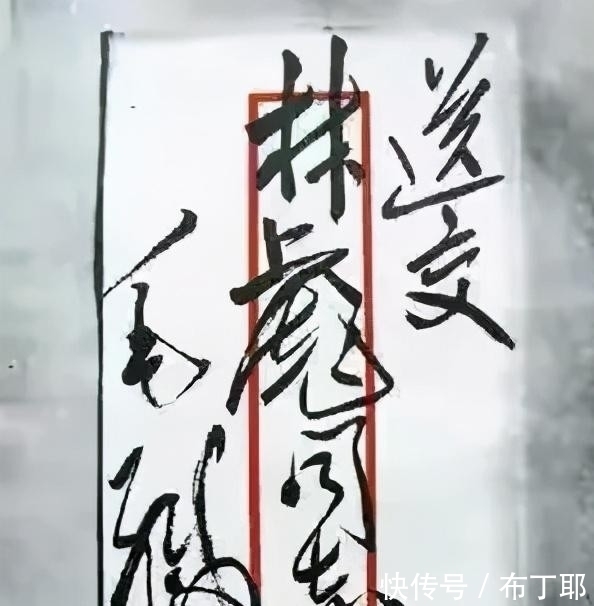 送交
林彪同志
毛缄
快传号 / 布丁耶